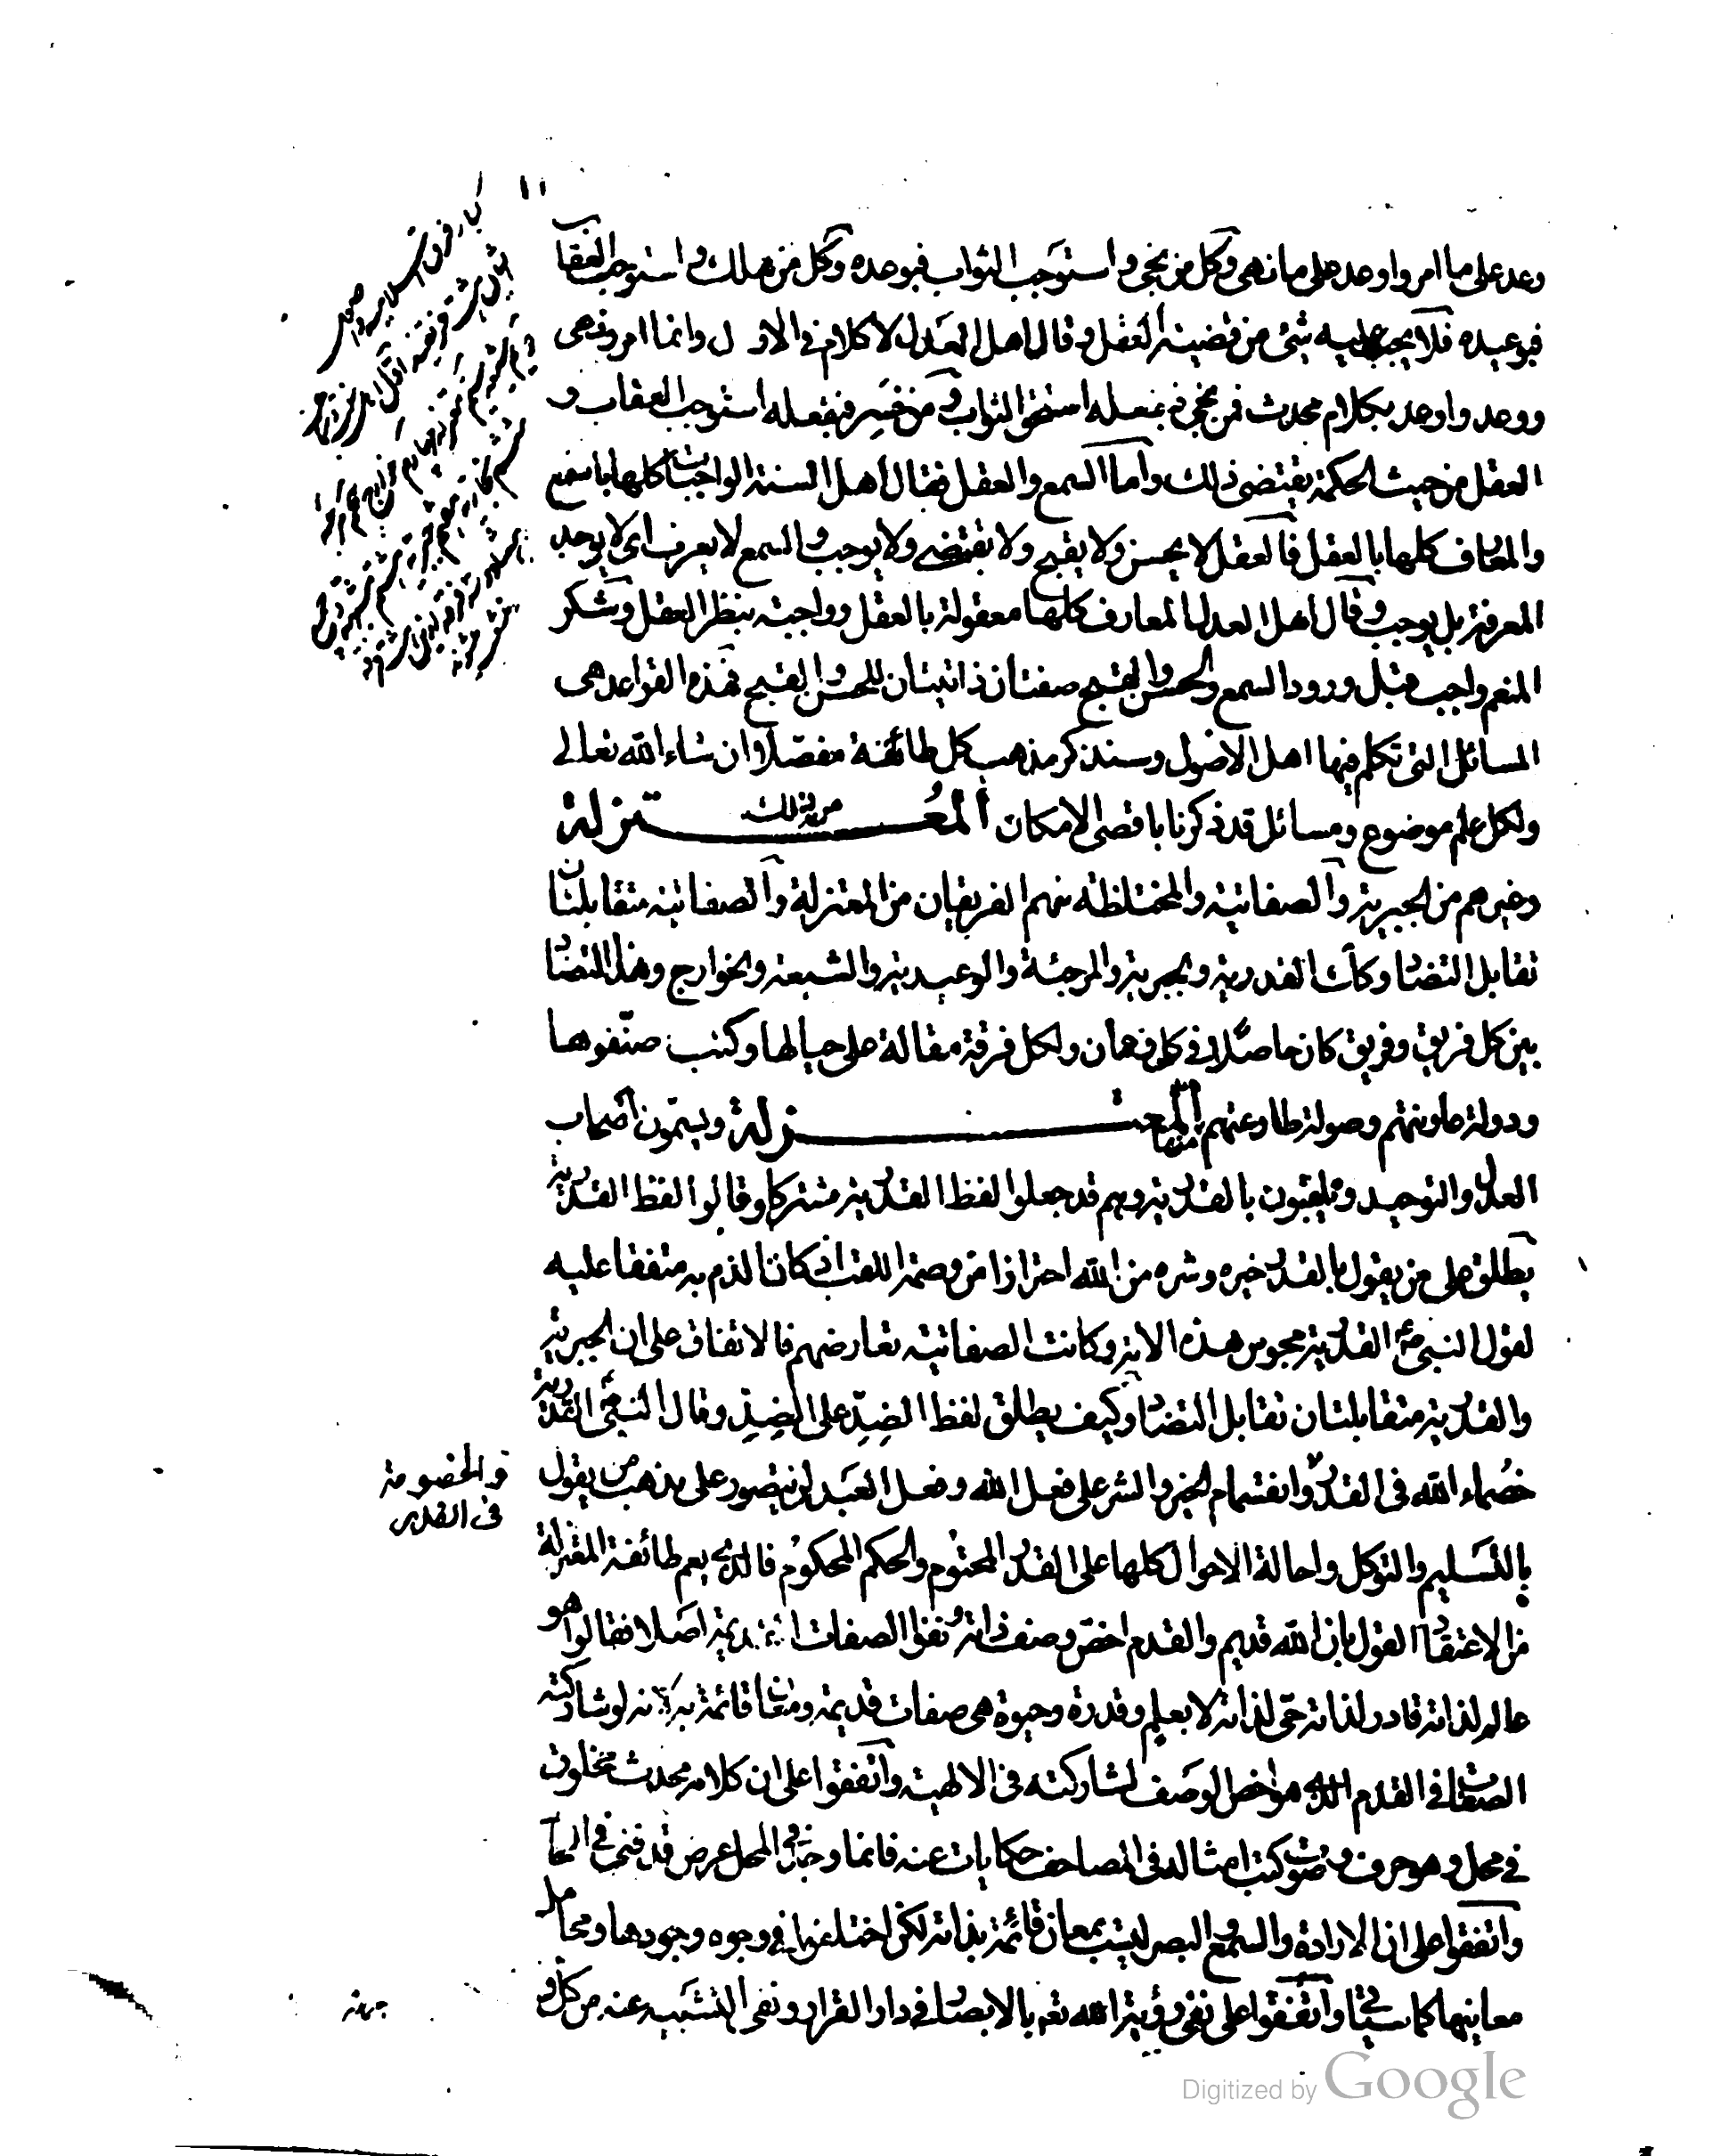 ١١
وعد على ما امر واوعد على ما نهى وكل من نجى واستوجب الثواب فبوعده وكل من هلك واستوجب العقاب
فبوعيده فلا يجب عليه شئ من قضية العقل وقال اهل العدل لا كلام فى الازل وانما امر ونهى
ووعد واوعد بكلام محدث فمن نجى فبفعله استحق الثواب ومن خسر فبفعله استوجب العقاب و
العقل من حيث الحكمة يقتضى ذلك واما السمع والعقل فقال اهل السنة الواجبات كلها بالسمع
والمعارف كلها بالعقل فالعقل لا يحسن ولا يقبح ولا يقتضى ولا يوجب والسمع لا يعرف اى لا يوجد
المعرفة بل يوجب وقال اهل العدل المعارف كلها معقولة بالعقل وواجبة بنظر العقل وشكر
المنعم واجب قبل ورود السمع والحسن والقبح صفتان ذاتيتان للحسن والقبيح فهذه القواعد هى
المسائل التى تكلم فيها اهل الاصول وسنذكر مذهب كل طائفة مفصلا ان شاء الله تعالى
ولكل علم موضوع ومسائل قد ذكرنا باقصى الامكان المعتزلة
وغيرهم من الجبرية والصفاتية والمختلطة منهم الفريقان من المعتزلة والصفاتية متقابلتان
تقابل التضاد وكذلك القدرية والجبرية والمرجئة والوعيدية والشيعة والخوارج وهذا التضاد
بين كل فريق وفريق كان حاصلا فى كل زمان ولكل فرقة مقالة على حيالها وكتب صنفوها
ودولة عاونتهم وصولة طاوعتهم المعتزلة ويسمون اصحاب
العدل والتوحيد ويلقبون بالقدرية وهم قد جعلوا لفظ القدرية مشتركا وقالوا لفظ القدرية
يطلق على من يقول بالقدر خيره وشره من الله احترازا من وصمة اللقب اذ كان الذم به متفقا عليه
لقول النبى القدرية مجوس هذه الامة وكانت الصفاتية تعارضهم فالاتفاق على ان الجبرية
والقدرية متقابلتان تقابل التضاد وكيف يطلق لفظ الضد على الضد وقال النبى القدرية
خصماء الله فى القدر وانقسام الخير والشر على فعل الله وفعل العبد لن يتصور على مذهب من يقول
والخصومة
فى القدر
بالتسليم والتوكل واحالة الاحوال كلها على القدر المحتوم والحكم المحكوم فالذى يعم طائفة المعتزلة
من الاعتقاد القول بان الله قديم والقدم اخص وصف ذاته ونفوا الصفات القديمة اصلا فقالوا هو
عالم لذاته قادر لذاته حى لذاته لا بعلم وقدرة وحيوة هى صفات قديمة ومعان قائمة به لانه لو شاركته
الصفات فى القدم الذى هو اخص الوصف لشاركته فى الالهية واتفقوا على ان كلامه محدث مخلوق
فى محل وهو حرف وصوت كتب امثاله فى المصاحف حكايات عنه فانما وجد فى المحل عرض قد فنى فى الحال
واتفقوا على ان الارادة والسمع والبصر ليست بمعان قائمة بذاته لكن اختلفوا فى وجوه وجودها ومحامل
معانيها كما سيأتى واتفقوا على نفى رؤية الله تعه بالابصار فى دار القرار ونفى التشبيه عنه من كل و
جهة
Digitized by Google